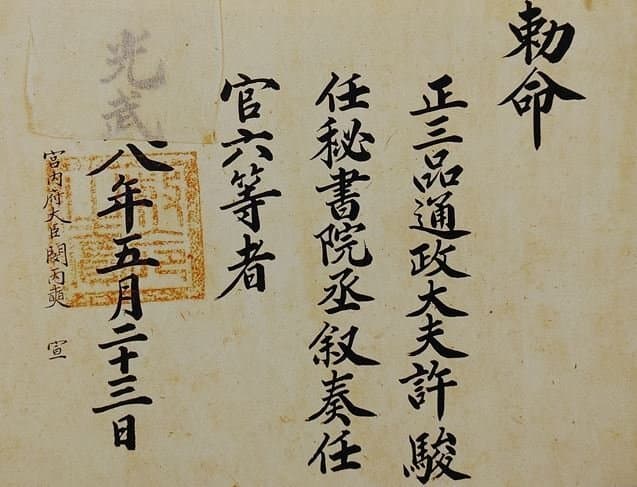 勅命
正三品通政大夫許駿
任秘書院丞叙奏任
官六等者
光武八年五月二十三日
宮内府大臣閔丙奭 宣